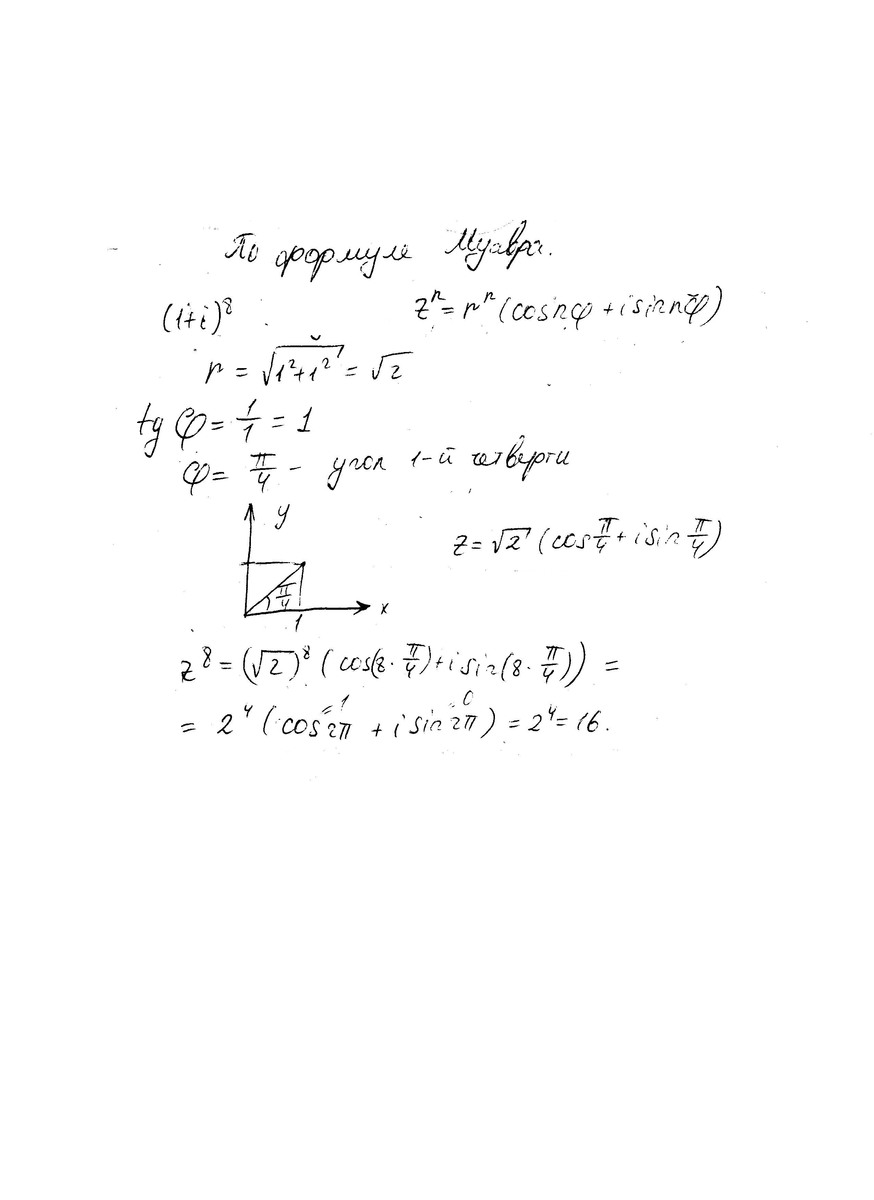 По формуле Муавра.
(1+i)^8 z^n = r^n (cos nφ + i sin nφ)
r = √(1²+1²) = √2
tg φ = 1/1 = 1
φ = π/4 - угол 1-й четверти
y
z = √2 (cos π/4 + i sin π/4)
π/4
x
1
z^8 = (√2)^8 (cos(8·π/4) + i sin(8·π/4)) =
=1 0
= 2^4 (cos 2π + i sin 2π) = 2^4 = 16.